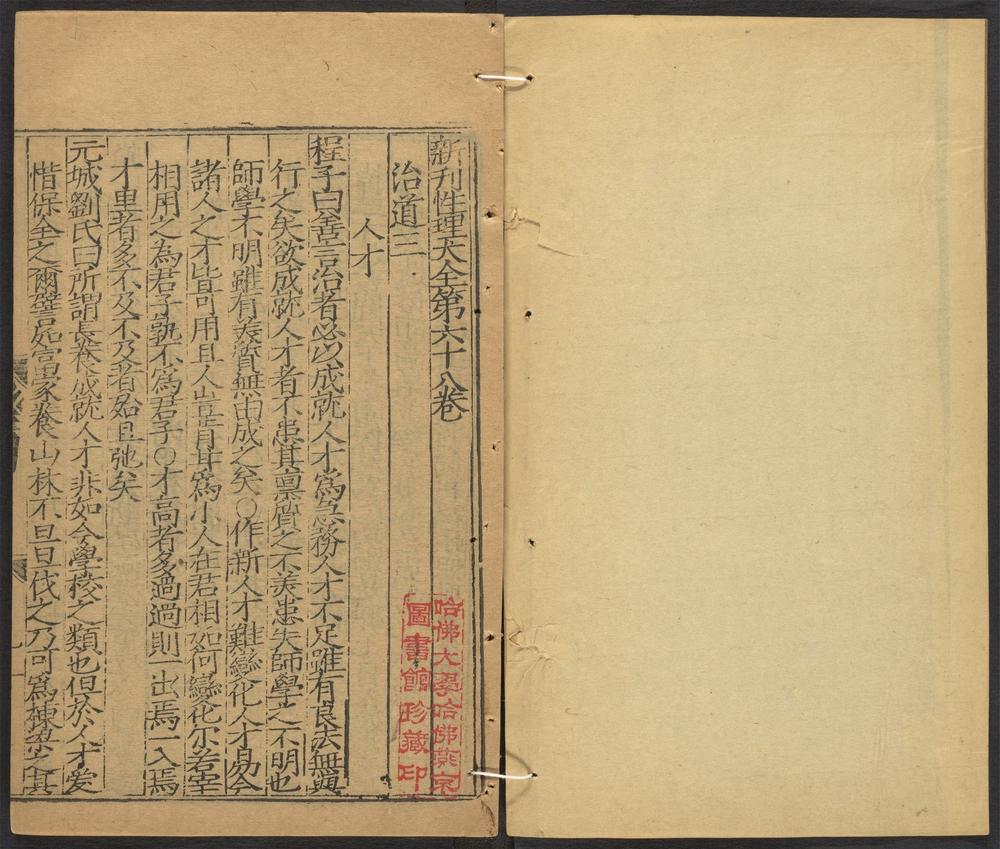 新刊性理大全第六十八卷
治道三
人才
程子曰善言治者必以成就人才爲急務人才不足雖有良法無與
行之矣欲成就人才者不患其禀質之不美患夫師學之不明也
師學不明雖有美質無由成之矣○作新人才難變化人才易今
諸人之才皆可用且人豈肯甘爲小人在君相如何變化尔若宰
相用之為君子孰不爲君子○才高者多過過則一出焉一入焉
才卑者多不及不及者殆且弛矣
元城劉氏曰所謂長養成就人才非如今學校之類也但於人才爱
惜保全之爾譬如富家養山林不旦旦伐之乃可爲棟梁之具
哈佛大學哈佛燕京
圖書館珍藏印